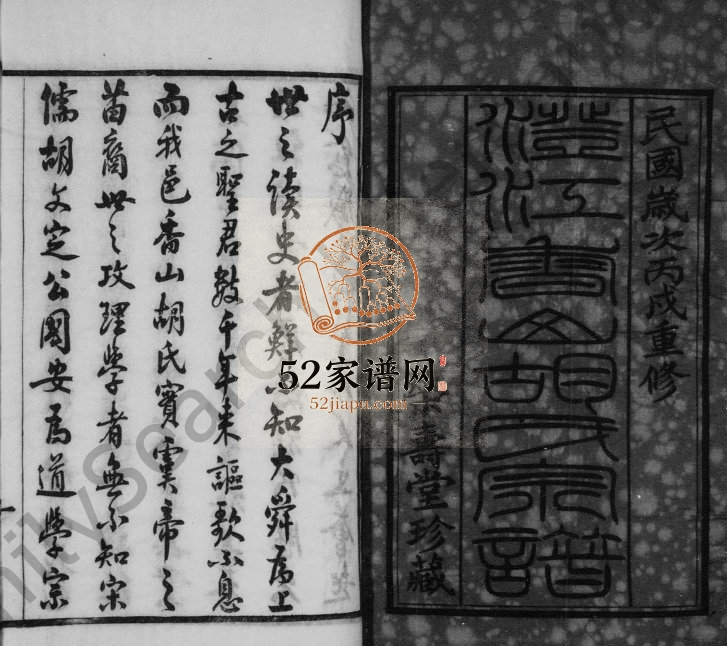 民國歲次丙戌重修
澄江香山胡氏宗譜
壽堂珍藏
序
世之读史者鲜不知大舜為上
古之聖君數千年来謳歌不息
而我邑香山胡氏實虞帝之
苗裔世之攻理學者無不知宋
儒胡文定公國安為道學宗
52家谱网
52jiapu.com